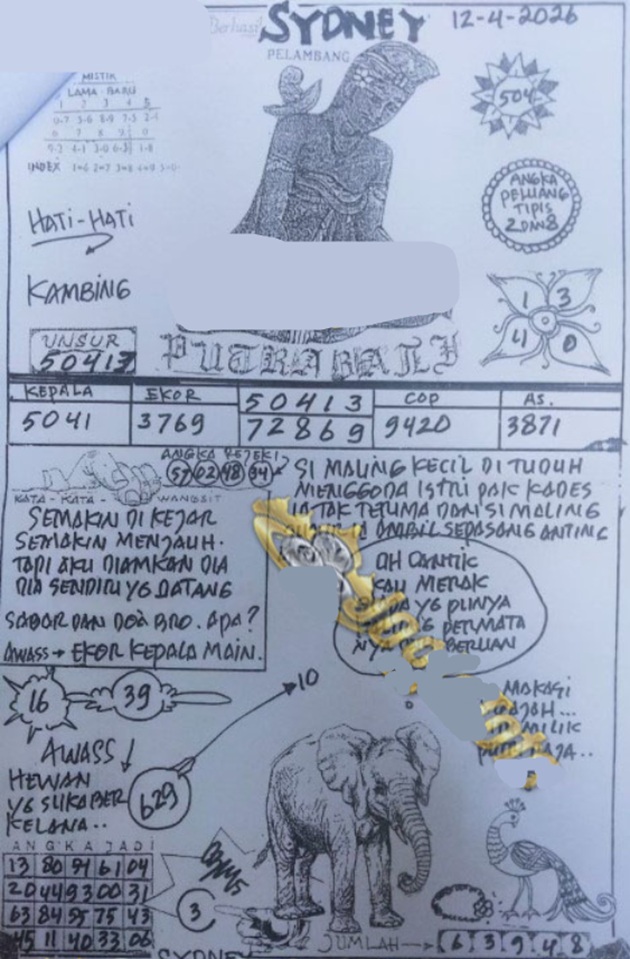 Berhasil SYDNEY 12-4-2026
PELAMBANG
MISTIK
LAMA - BARU
1 2 3 4 5
INDEX
504
ANGKA
PELUANG
TIPIS
2 DAN 8
HATI-HATI
KAMBING
1 3
4 0
UNSUR
50413
PUTRA BALI
KEPALA EKOR 50413 COP AS.
5041 3769 72869 9420 3871
ANGKA REJEKI
57 02 48 34
KATA - KATA - WANGSIT
SEMAKIN DI KEJAR
SEMAKIN MENJAUH.
TAPI AKU DIAMKAN DIA
DIA SENDIRI YG DATANG
SABAR DAN DOA BRO. APA?
AWASS → EKOR KEPALA MAIN.
SI MALING KECIL DI TUDUH
MENGGODA ISTRI PAK KADES
IA TAK TERIMA DAN SI MALING
AMBIL SEPASANG ANTING
OH CANTIK
KAU MERAK
YG PUNYA
PERMATA
NYA BERLIAN
16 39
10
AWASS
HEWAN
YG SUKA BER
KELANA..
629
MILIK
ANGKA JADI
13 80 97 61 04
20 44 93 00 31
63 84 95 75 43
45 11 40 33 06
3
SYDNEY
JUMLAH → 6 3 9 4 8